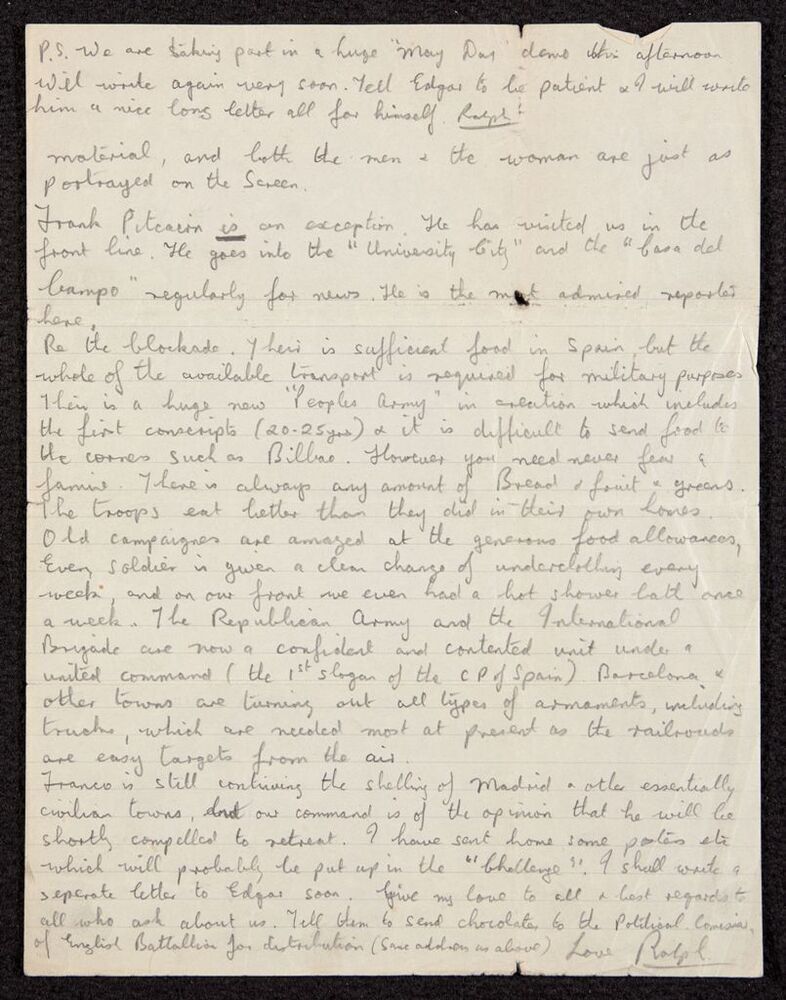 P.S. We are taking part in a huge "May Day" demo this afternoon
Will write again very soon. Tell Edgar to be patient & I will write
him a nice long letter all for himself. Ralph!
material, and both the men & the woman are just as
portrayed on the Screen.
Frank Pitcairn is an exception. He has visited us in the
front line. He goes into the "University City" and the "Casa del
Campo" regularly for news. He is the most admired reporter
here.
Re the blockade. Their is sufficient food in Spain, but the
whole of the available transport is required for military purposes
Their is a huge new "Peoples Army" in creation which includes
the first conscripts (20-25yrs) & it is difficult to send food to
the corners such as Bilbao. However you need never fear a
famine. There is always any amount of Bread & fruit & greens.
The troops eat better than they did in their own homes.
Old campaigners are amazed at the generous food allowances,
Every soldier is given a clean change of underclothing every
week, and on our front we even had a hot shower bath once
a week. The Republican Army and the International
Brigade are now a confident and contented unit under a
united command (the 1st slogan of the C P of Spain) Barcelona &
other towns are turning out all types of armaments, including
trucks, which are needed most at present as the railroads
are easy targets from the air.
Franco is still continuing the shelling of Madrid & other essentially
civilian towns, but our command is of the opinion that he will be
shortly compelled to retreat. I have sent home some posters etc
which will probably be put up in the "Challenge". I shall write a
seperate letter to Edgar soon. Give my love to all & best regards to
all who ask about us. Tell them to send chocolates to the Political Comisiar,
of English Battallion for distribution (Same address as above) Love Ralph